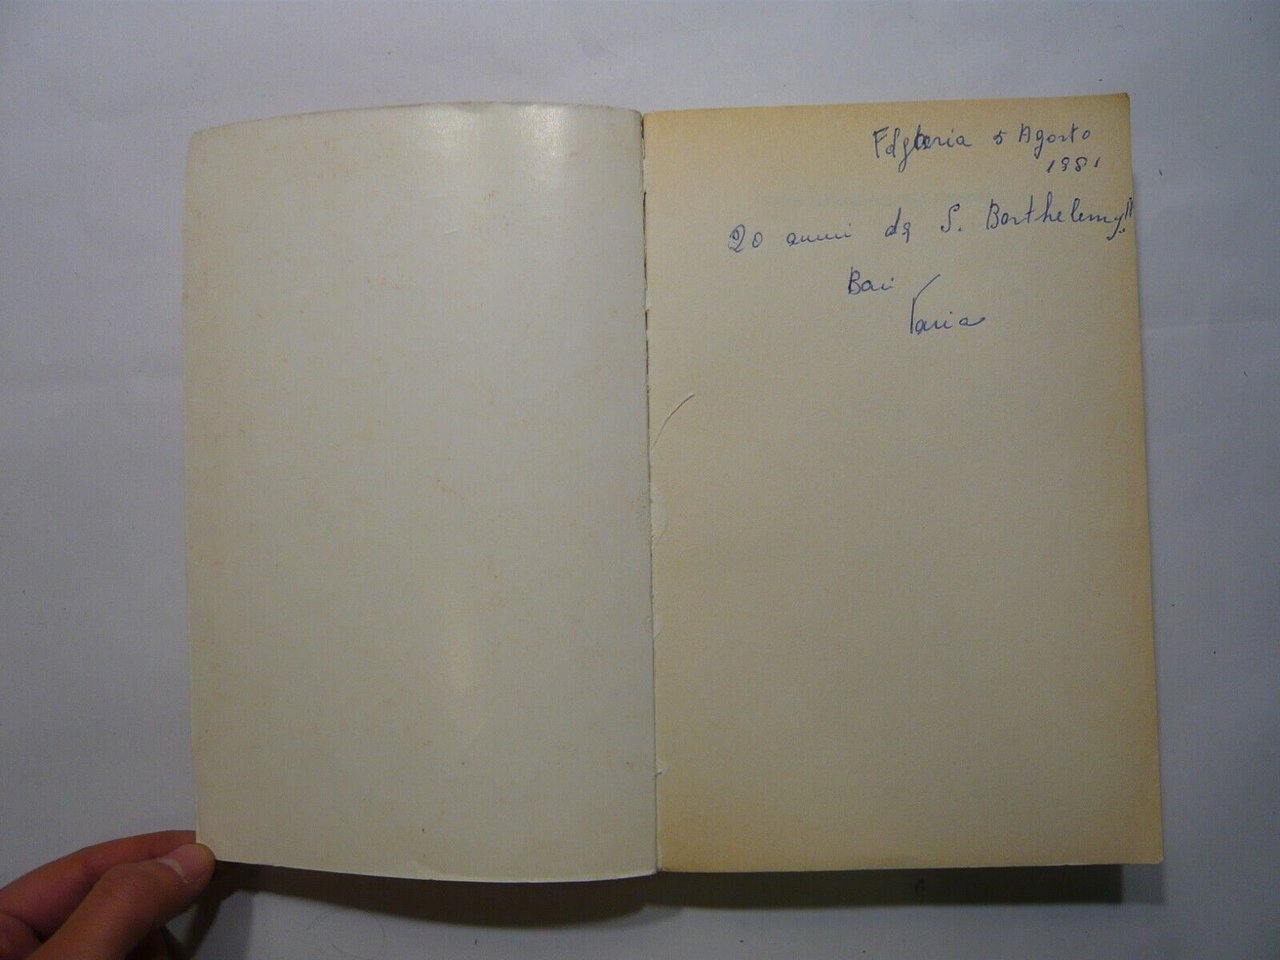 Folgaria 5 Agosto
1981
20 anni da S. Barthelemy!!
Baci